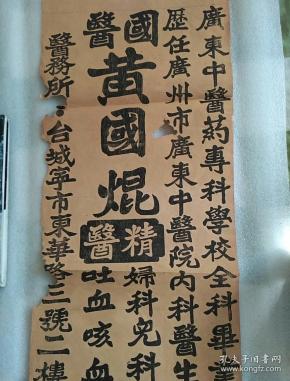 廣東中醫葯專科學校全科畢
歷任廣州市廣東中醫院內科醫生
國醫
黃國焜
精醫
婦科兒科
吐血咳血
醫務所：台城寧市東華路三號二樓
孔夫子旧书网